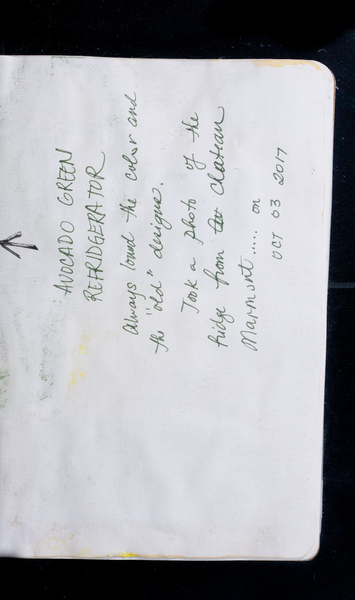 AVOCADO GREEN
REFRIDGERATOR
Always loved the color and
the "old" designs.
Took a photo of the
fridge from Chateau
Marmont..... on
OCT 03 2017